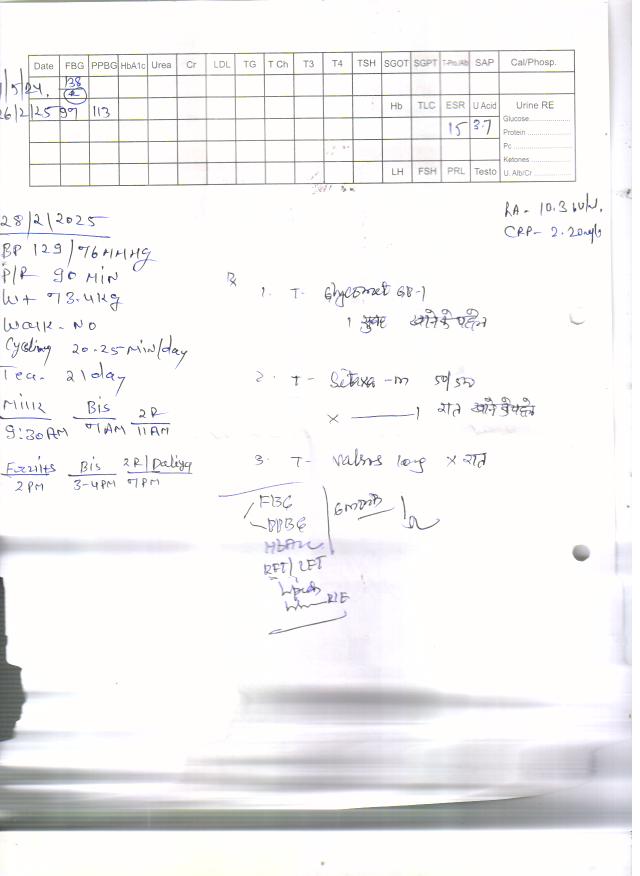 Date FBG PPBG HbA1c Urea Cr LDL TG T Ch T3 T4 TSH SGOT SGPT T-Pro./Alb SAP Cal/Phosp.
/5/24. 138
26/2/25 97 113
Hb TLC ESR U Acid Urine RE
15 3.7
Glucose
Protein
Pc
Ketones
LH FSH PRL Testo U. Alb/Cr
RA- 10.3 IU/L
CRP- 2.20 mg/L
28/2/2025
BP 129/76 MMHG
P/R 90 MIN
Wt 73.4kg
Walk-NO
Cycling 20-25 Min/day
Tea- 2/day
Milk Bis 2R
9:30AM 7AM 11AM
Fruits Bis 2R/Daliya
2PM 3-4PM 7PM
Rx
1. T- Glycomet
1 सुबह खाने के पहले
2. T- -m 50/500
x 1 रात खाने के पहले
3. T- x रात
FBG
PPBG
HbA1c
RFT/LFT
Lipids
Urine R/E